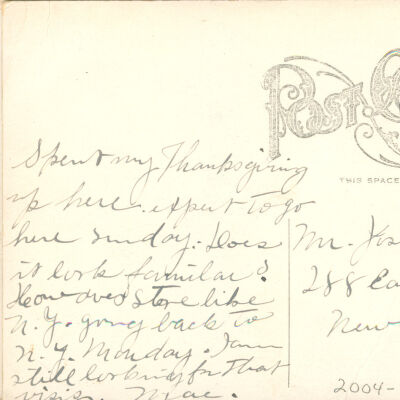 POST C
THIS SPACE
Spent my Thanksgiving
up here. expect to go
here sunday. Does
it look familar?
How does Steve like
N.Y. going back to
N.Y. Monday. I am
still looking for that
visit. Mae.
Mr. Jos
288 Ea
New
2004-